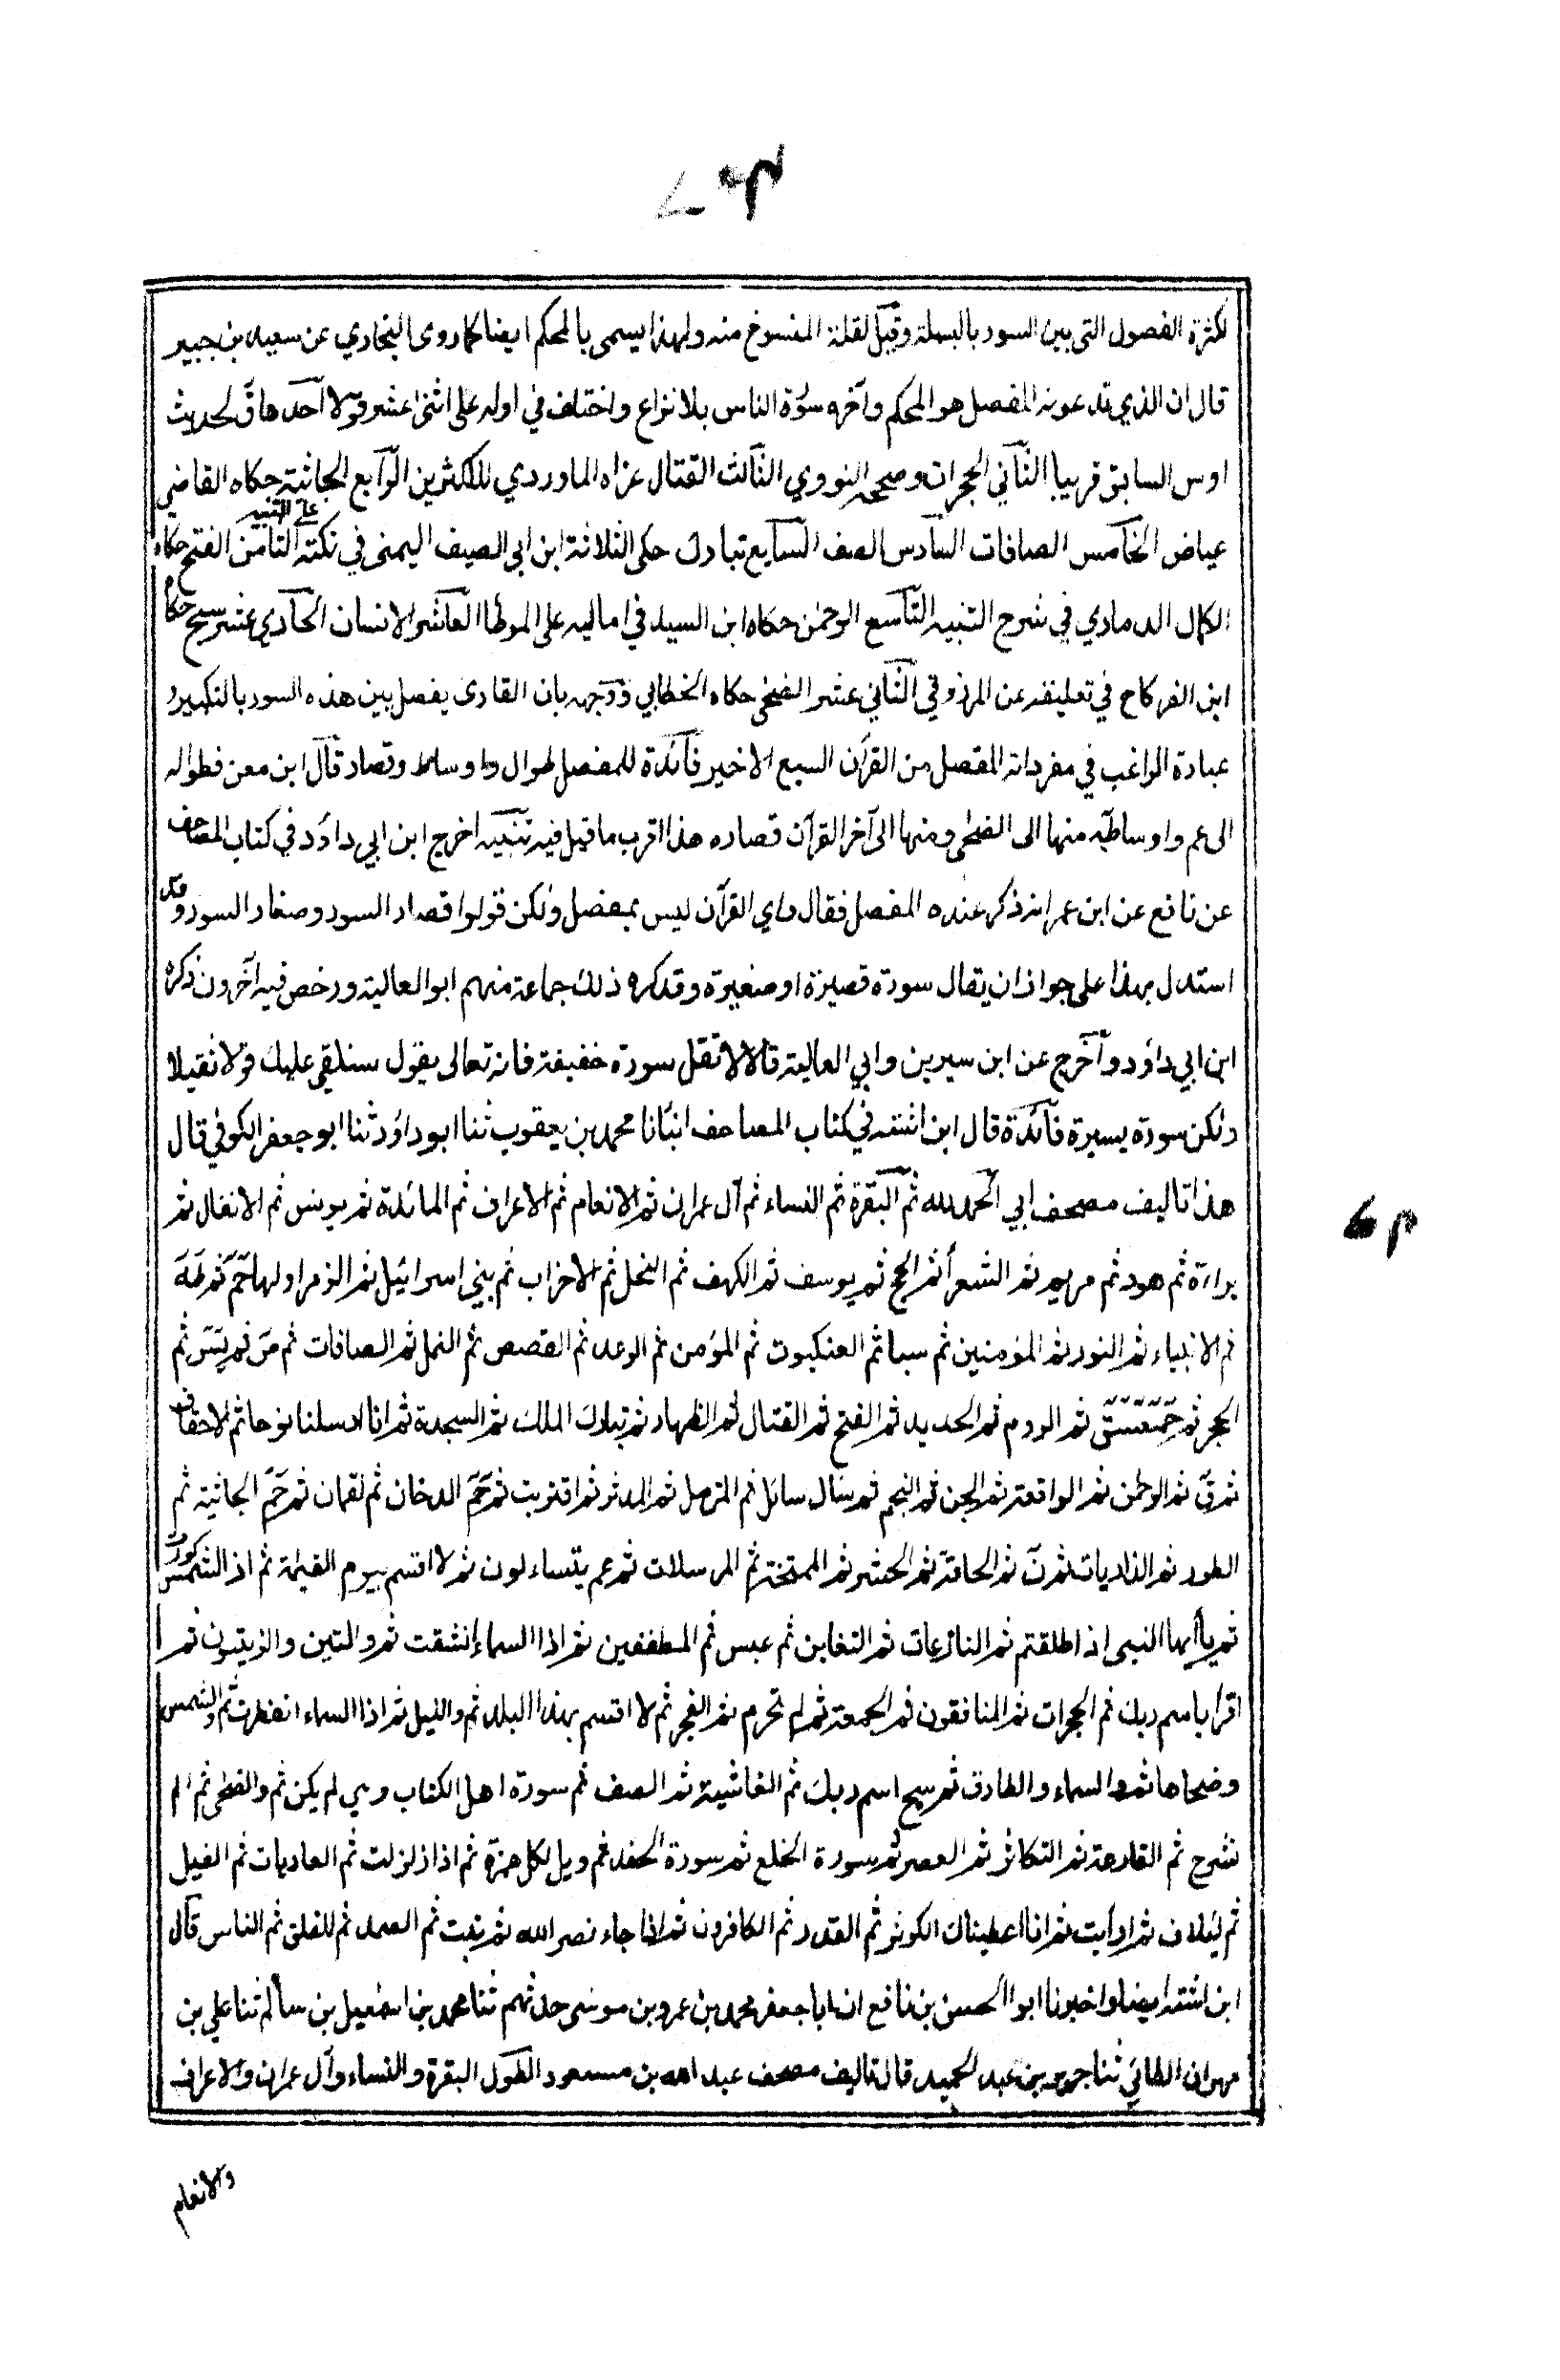 لكثرة الفصول التى بين السور بالبسملة وقيل لقلة المنسوخ منه ولهذا يسمى بالمحكم ايضا كما روى البخاري عن سعيد بن جبير
قال ان الذي تدعونه المفصل هو المحكم وآخره سورة الناس بلا نزاع واختلف في اوله على اثنى عشر قولا احدها ق لحديث
اوس السابق قريبا الثاني الحجرات وصححه النووي الثالث القتال عزاه الماوردي للاكثرين الرابع الجاثية حكاه القاضي
عياض الخامس الصافات السادس الصف السابع تبارك حكى الثلاثة ابن ابى الصيف اليمنى في نكته على التنبيه الثامن الفتح حكاه
الكمال الدمارى في شرح التنبيه التاسع الرحمٰن حكاه ابن السيد في اماليه على الموطا العاشر الانسان الحادي عشر سبح حكاه
ابن الفركاح في تعليقه عن المرزوقي الثاني عشر الضحى حكاه الخطابي ووجهه بان القارى يفصل بين هذه السور بالتكبير و
عبارة الراغب في مفرداته المفصل من القرآن السبع الاخير فائدة للمفصل طوال واوساط وقصار قال ابن معن فطواله
الى عم واوساطه منها الى الضحى ومنها الى آخر القرآن قصاره هذا اقرب ما قيل فيه تنبيه اخرج ابن ابي داؤد في كتاب المصاحف
عن نافع عن ابن عمر انه ذكر عنده المفصل فقال واي القرآن ليس بمفصل ولكن قولوا قصار السور وصغار السور وقد
استدل بهذا على جواز ان يقال سورة قصيرة او صغيرة وقد كره ذلك جماعة منهم ابو العالية ورخص فيه آخرون ذكره
ابن ابي داؤد واخرج عن ابن سيرين وابي العالية قالا لا تقل سورة خفيفة فانه تعالى يقول سنلقي عليك قولا ثقيلا
ولكن سورة يسيرة فائدة قال ابن اشته في كتاب المصاحف انبانا محمد بن يعقوب ثنا ابو داؤد ثنا ابو جعفر الكوفي قال
هذا تاليف مصحف ابي الحمد لله ثم البقرة ثم النساء ثم آل عمران ثم الانعام ثم الاعراف ثم المائدة ثم يونس ثم الانفال ثم
براءة ثم هود ثم مريم ثم الشعرأ ثم الحج ثم يوسف ثم الكهف ثم النحل ثم الاحزاب ثم بني اسرائيل ثم الزمر اولها حم ثم طه
ثم الانبياء ثم النور ثم المؤمنين ثم سبا ثم العنكبوت ثم المؤمن ثم الرعد ثم القصص ثم النمل ثم الصافات ثم ص ثم يس ثم
الحجر ثم حمعسق ثم الروم ثم الحديد ثم الفتح ثم القتال ثم الظهار ثم تبارك الملك ثم السجدة ثم انا ارسلنا نوحا ثم الاحقاف
ثم ق ثم الرحمٰن ثم الواقعة ثم الجن ثم النجم ثم سال سائل ثم المزمل ثم المدثر ثم اقتربت ثم حم الدخان ثم لقمان ثم حم الجاثية ثم
الطور ثم الذاريات ثم ن ثم الحاقة ثم الحشر ثم الممتحنة ثم المرسلات ثم عم يتساءلون ثم لا اقسم بيوم القيمة ثم اذ الشمس كورت
ثم يا ايها النبى اذ اطلقتم ثم النازعات ثم التغابن ثم عبس ثم المطففين ثم اذا السماء انشقت ثم والتين والزيتون ثم
اقرا باسم ربك ثم الحجرات ثم المنافقون ثم الجمعة ثم لم تحرم ثم الفجر ثم لا اقسم بهذا البلد ثم والليل ثم اذا السماء انفطرت ثم والشمس
وضحاها ثم والسماء والطارق ثم سبح اسم ربك ثم الغاشية ثم الصف ثم سورة اهل الكتاب وهي لم يكن ثم والضحى ثم الم
نشرح ثم القارعة ثم التكاثر ثم العصر ثم سورة الخلع ثم سورة الحفد ثم ويل لكل همزة ثم اذا زلزلت ثم العاديات ثم الفيل
ثم ليلاف ثم ارأيت ثم انا اعطيناك الكوثر ثم القدر ثم الكافرون ثم اذا جاء نصر الله ثم تبت ثم الصمد ثم للفلق ثم الناس قال
ابن اشته ايضا واخبرنا ابو الحسن بن نافع ان ابا جعفر محمد بن عمرو بن موسى حدثهم ثنا محمد بن اسمٰعيل بن سالم ثنا علي بن
مهران الطائي ثنا جرير بن عبد الحميد قال تاليف مصحف عبد الله بن مسعود الطول البقرة والنساء وآل عمران والاعراف
والانعام